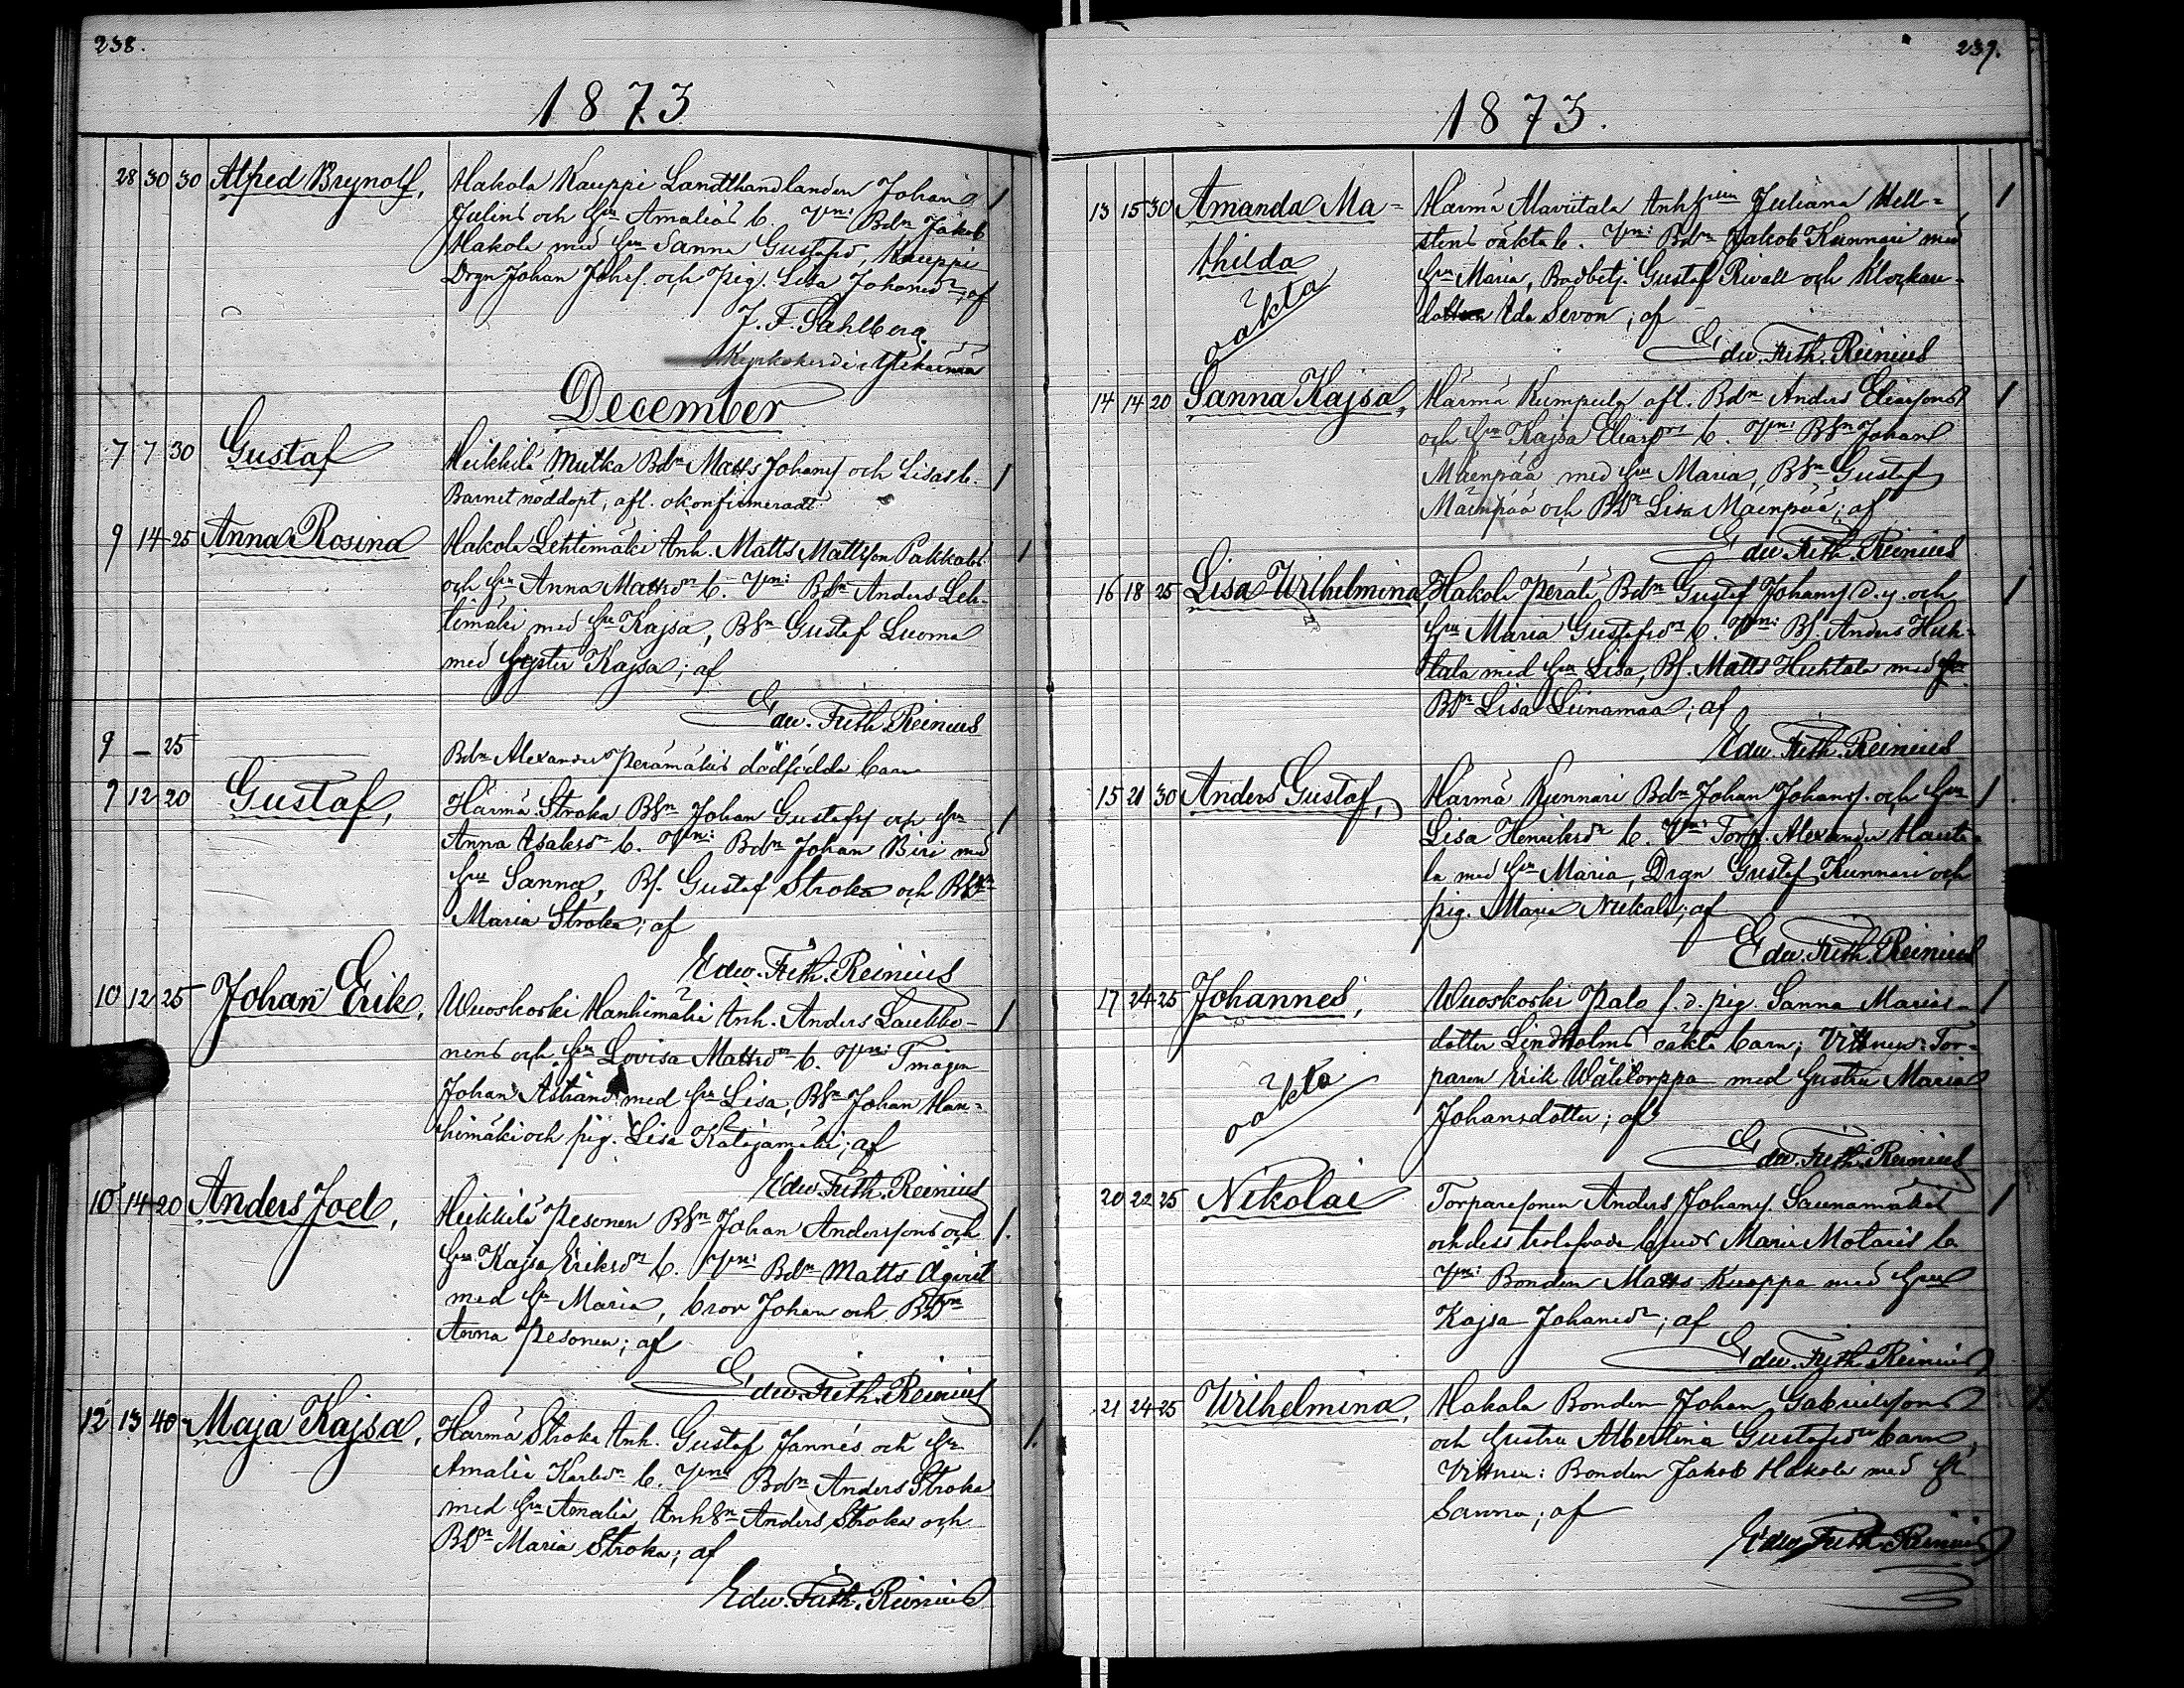 238.
1873
28 30 30 Alfred Brynolf, Hakola Kauppi Landthandlanden Johan
Julins och hu Amalias b. Vn: Bdn Jakob
Hakola med hu Sanna Gustafsd, Kauppi
Drgn Johan Johs. och pig. Lisa Johansdr; af
J. F. Sahlberg.
Kyrkoherde i
December
7 7 30 Gustaf Heikkilä Mutka Bdn Matts Johans och Lisas b. 1
Barnet nöddöpt, afl. okonfirmeradt.
9 14 25 Anna Rosina Hakola Lehtimäki Inh. Matts Mattsson Pakkalas 1
och hu Anna Mattsdr b. Vn: Bdn Anders Leh-
timäki med hu Kajsa, BSn Gustaf Luoma
med syster Kajsa; af
Edw. Frith. Reinius
9 — 25 Bdn Alexander Perämäkis dödfödda barn
9 12 20 Gustaf, Härmä Stroka BSn Johan Gustafs och hu 1
Anna Isaksdr b. Vn: Bdn Johan Biri med
hu Sanna, Bs. Gustaf Stroka och BDn
Maria Stroka; af
Edw. Frith. Reinius
10 12 25 Johan Erik, Wuoskoski Hanhimäki Inh. Anders Laukko- 1
nens och hu Lovisa Mattsdr b. Vn: Tmågen
Johan Åstrand med hu Lisa, BSn Johan Han-
himäki och pig. Lisa Katajamäki; af
Edw. Frith. Reinius
10 14 20 Anders Joel, Heikkilä Pesonen BSn Johan Anderssons och 1.
hu Kajsa Eriksdr b. Vn: Bdn Matts
med hu Maria, bror Johan och BDn
Anna Pesonen; af
Edw. Frith. Reinius
12 13 40 Maja Kajsa, Härmä Stroka Inh. Gustaf Jannés och hu 1.
Amalia Karlsdr b. Vn: Bdn Anders Stroka
med hu Amalia, InhSn Anders Stroka och
BDn Maria Stroka; af
Edw. Frith. Reinius
239.
1873.
13 15 30 Amanda Ma- Härmä Mariitala Juliana Hell- 1
stens oäkta b. Vn: Bdn Jakob Kunnari med
thilda hu Maria, Gustaf Rivall och Klockan-
oäkta Ida Sevon; af
Edw. Frith. Reinius
14 14 20 Sanna Kajsa, Härmä Kumpula afl. Bdn Anders Eliassons 1
och hu Kajsa Eliasdrs b. Vn: BSn Johan
Mäenpää med hu Maria, BSn Gustaf
Mäenpää och BDn Lisa Mäenpää; af
Edw. Frith. Reinius
16 18 25 Lisa Wilhelmina, Hakola Perälä Bdn Gustaf Johans d. y. och 1
hu Maria Gustafsdr b. Vn: Bs. Anders Huh-
tala med hu Lisa, Bs. Matts Huhtala med
BDn Lisa Liinamaa; af
Edw. Frith. Reinius
15 21 30 Anders Gustaf, Härmä Kunnari Bdn Johan Johans. och hu 1.
Lisa Henriksdr b. Vn: Torp. Alexander Hauta-
la med hu Maria, Drgn Gustaf Kunnari och
pig. Maria Niekala; af
Edw. Frith. Reinius
17 24 25 Johannes, Wuoskoski Palo f. d. pig. Sanna Marias- 1
dotter Lindholms oäkta barn; Vittnen: Tor-
oäkta paren Erik Wälitorppa med hustru Maria
Johansdotter; af
Edw. Frith. Reinius
20 22 25 Nikolai Torparesonen Anders Johans. Saunamäkis 1
och dess trolofvade bruds Maria Motaris b.
Vn: Bonden Matts Kuoppa med hu
Kajsa Johansdr; af
Edw. Frith. Reinius
21 24 25 Wilhelmina, Hakola Bonden Johan Gabrielssons
och hustru Albertina Gustafsdr barn,
Vittnen: Bonden Jakob Hakola med h
Sanna; af
Edw. Frith. Reinius